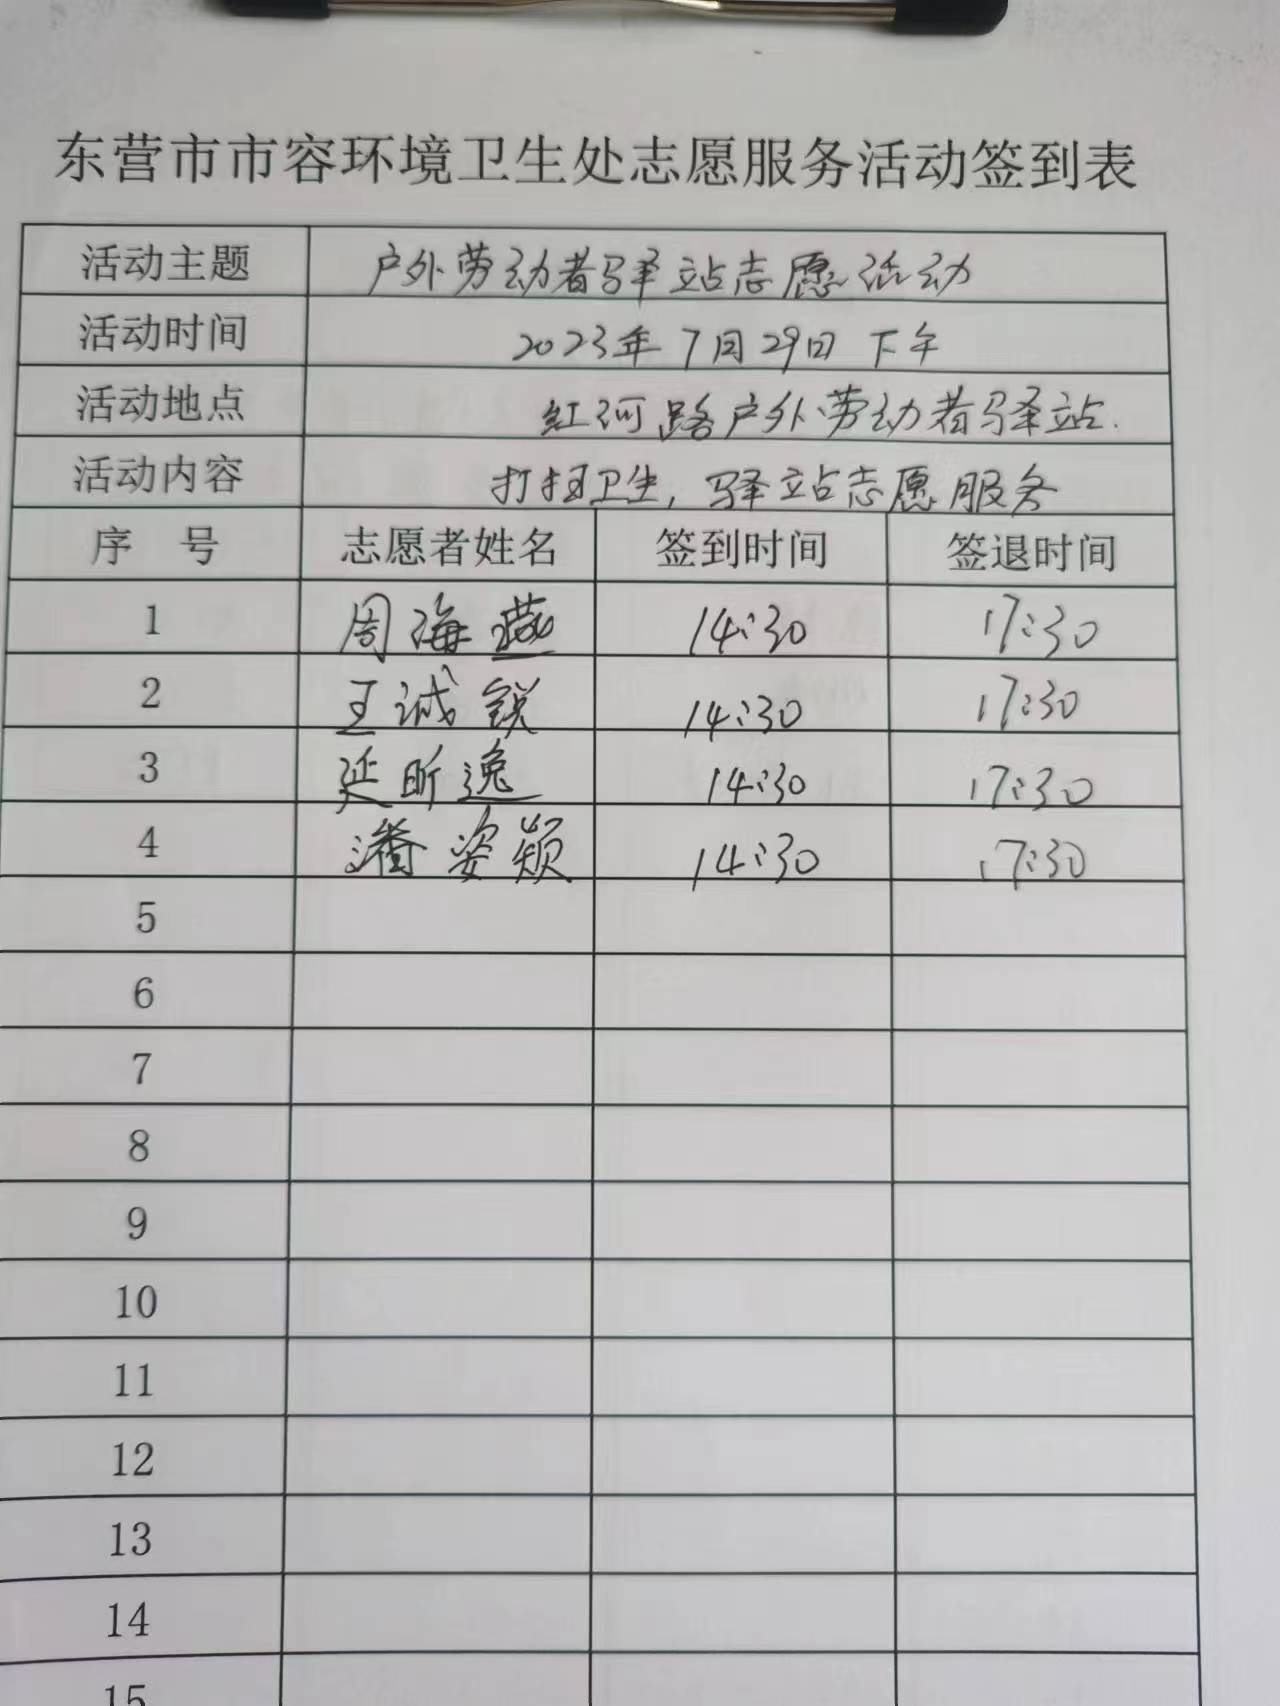 东营市市容环境卫生处志愿服务活动签到表
活动主题 户外劳动者驿站志愿活动
活动时间 2023年7月29日 下午
活动地点 红河路户外劳动者驿站.
活动内容 打扫卫生,驿站志愿服务
序 号 志愿者姓名 签到时间 签退时间
1 周海燕 14:30 17:30
2 王诚锐 14:30 17:30
3 延昕逸 14:30 17:30
4 潘姿颖 14:30 17:30
5
6
7
8
9
10
11
12
13
14
15